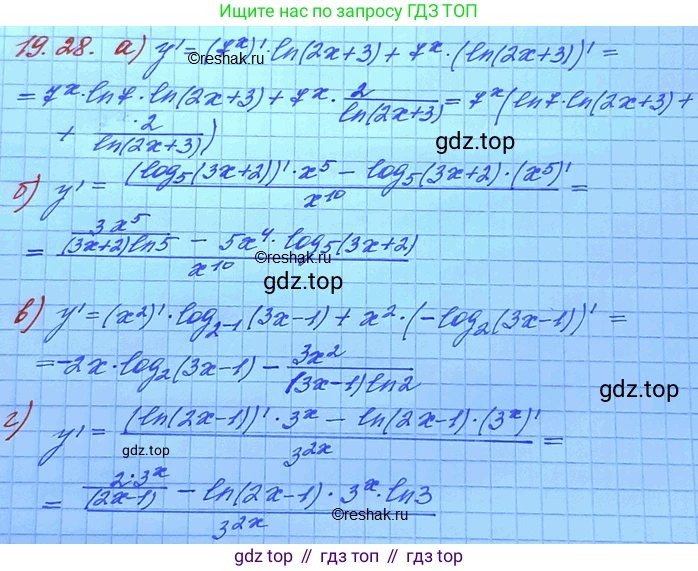 Ищите нас по запросу ГДЗ ТОП
19.28. а) y' = (7^x)' · ln(2x+3) + 7^x · (ln(2x+3))' =
©reshak.ru
= 7^x · ln7 · ln(2x+3) + 7^x · 2/ln(2x+3) = 7^x (ln7 · ln(2x+3) +
+ 2/ln(2x+3))
gdz.top
б) y' = ((log_5(3x+2))' · x^5 − log_5(3x+2) · (x^5)')/x^10 =
= (3x^5/((3x+2)ln5) − 5x^4 · log_5(3x+2))/x^10
©reshak.ru
gdz.top
в) y' = (x^2)' · log_{2^-1}(3x−1) + x^2 · (−log_2(3x−1))' =
= −2x · log_2(3x−1) − 3x^2/((3x−1)ln2)
gdz.top
г) y' = ((ln(2x−1))' · 3^x − ln(2x−1) · (3^x)')/3^{2x} =
gdz.top
= (2·3^x/(2x−1) − ln(2x−1) · 3^x · ln3)/3^{2x}
©reshak.ru
gdz.top // гдз топ // gdz.top